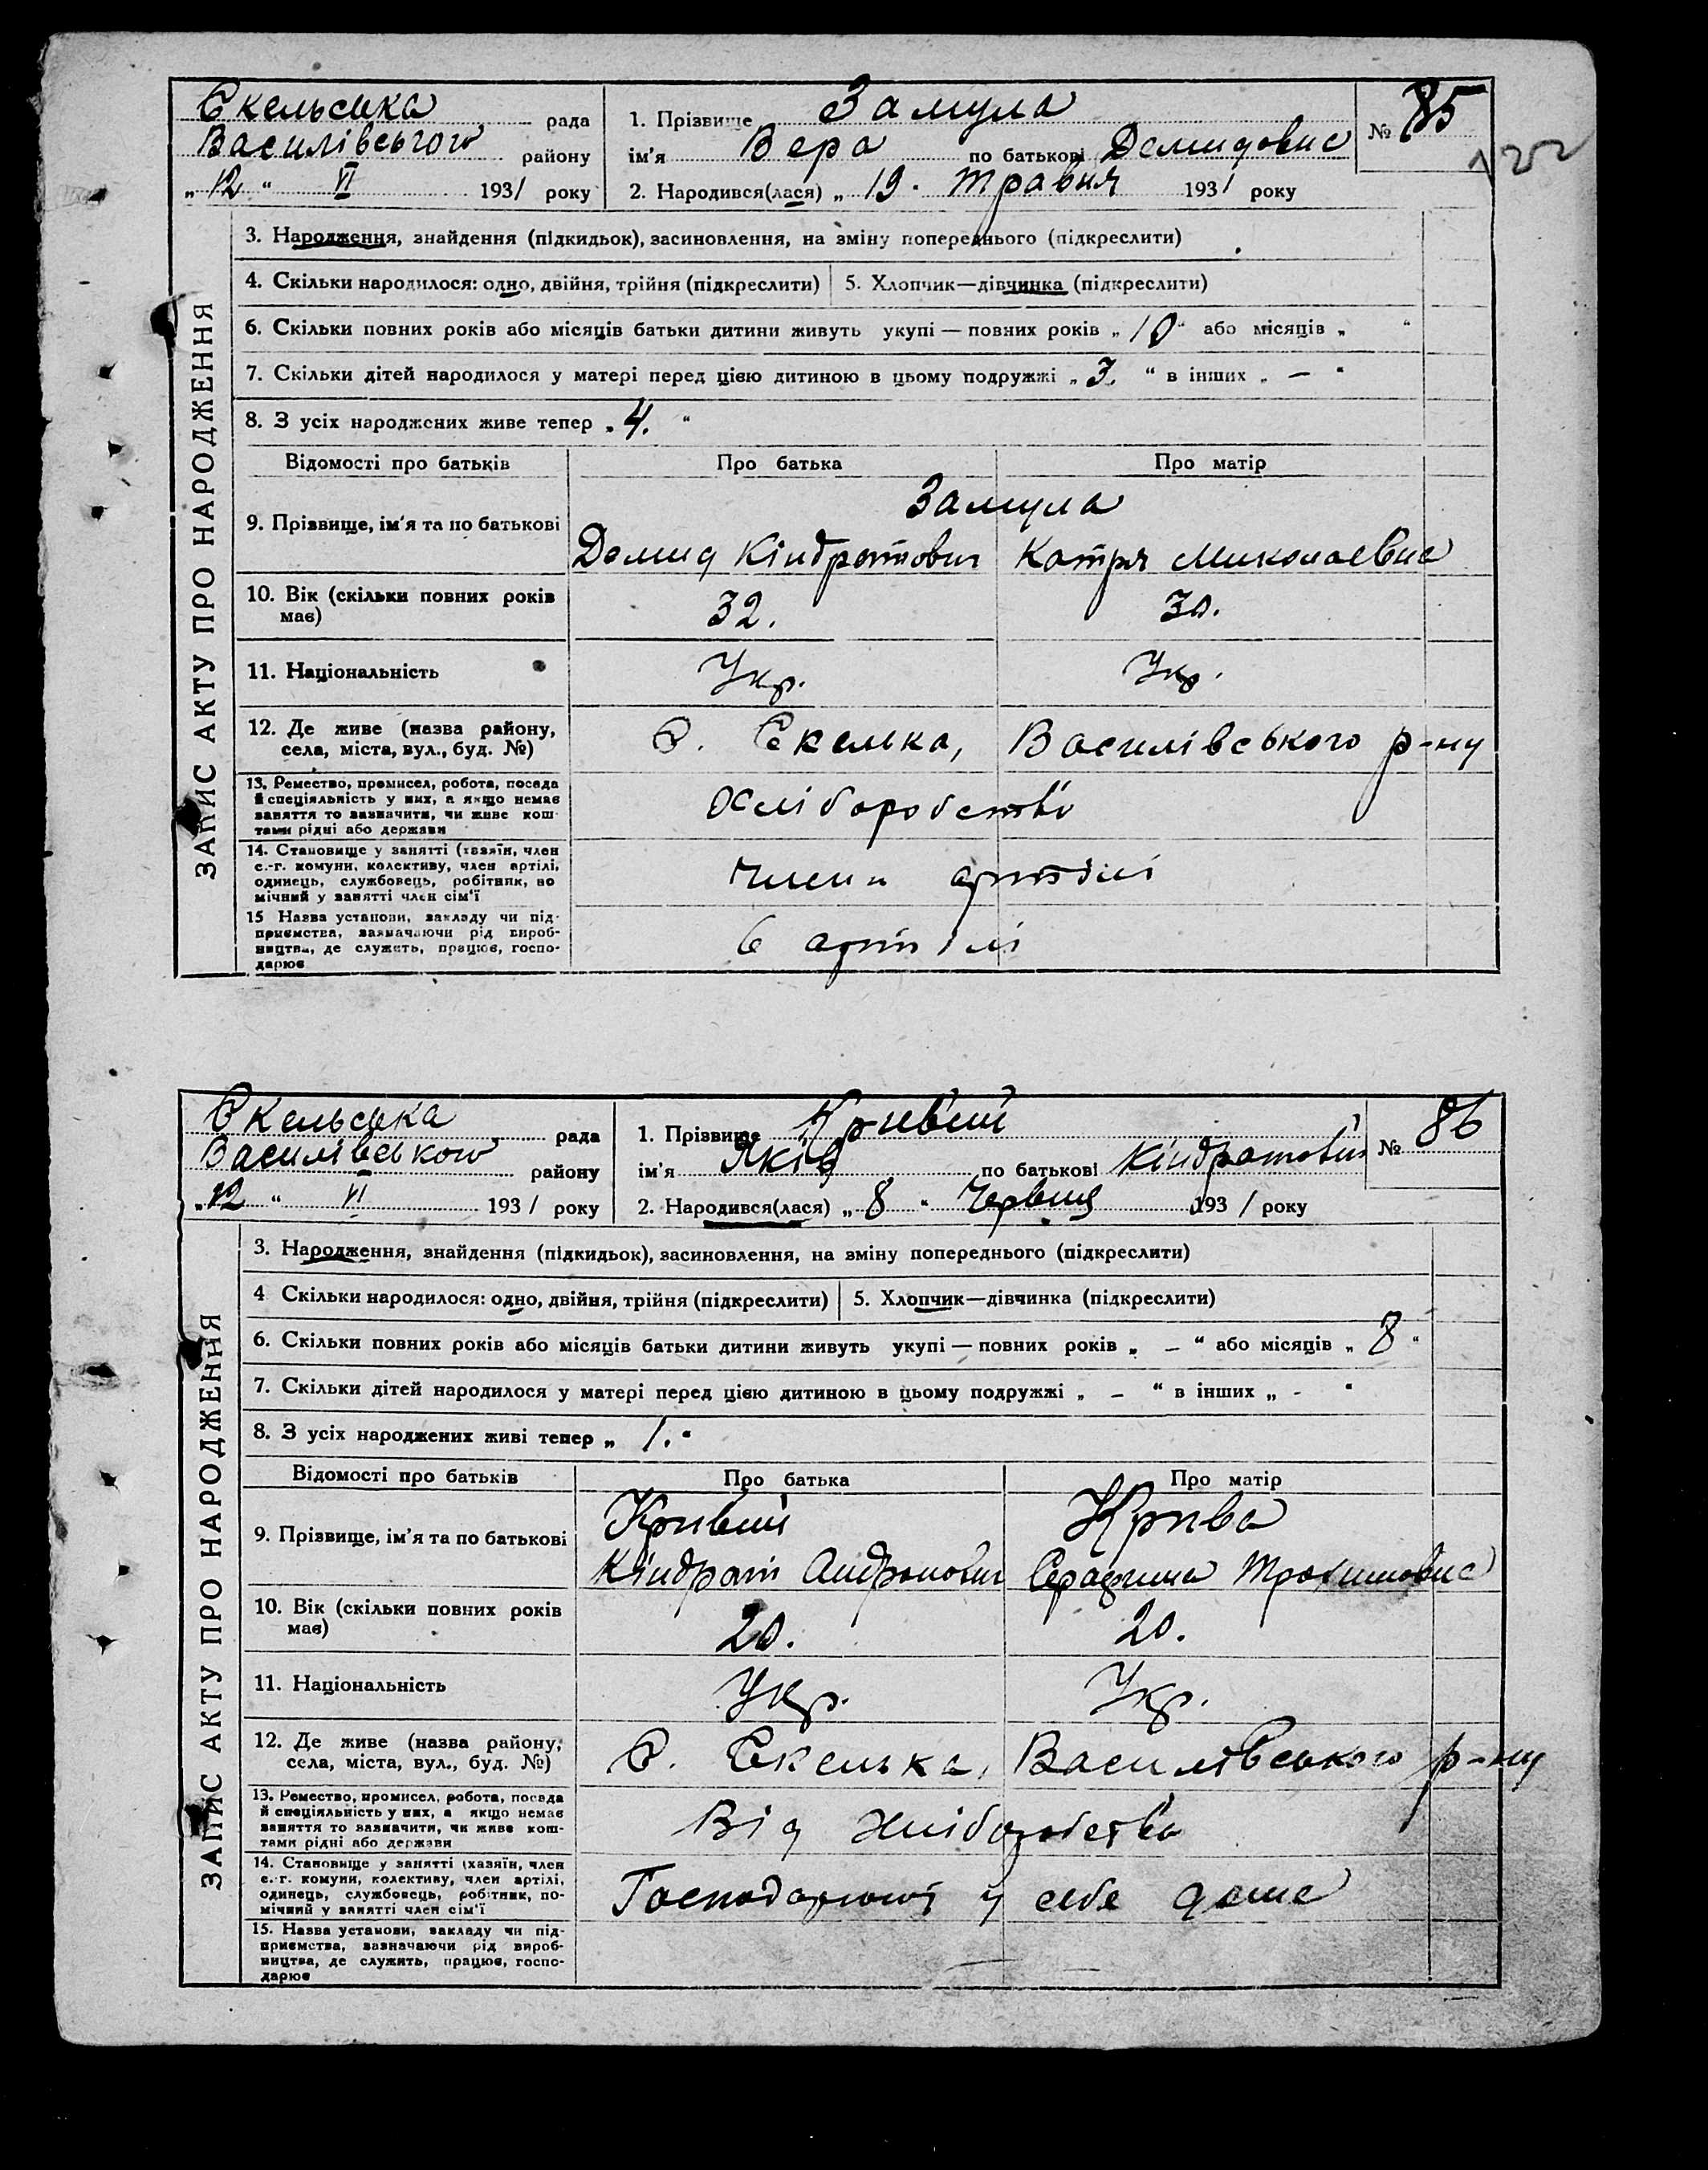 Скельська рада
Василівського району
„ 12 “ VI 1931 року
1. Прізвище Замула
ім'я Вера по батькові Демидовна
2. Народився(лася) „ 19. травня 1931 року
№ 85
122
ЗАПИС АКТУ ПРО НАРОДЖЕННЯ
3. Народження, знайдення (підкидьок), засиновлення, на зміну попереднього (підкреслити)
4. Скільки народилося: одно, двійня, трійня (підкреслити) 5. Хлопчик—дівчинка (підкреслити)
6. Скільки повних років або місяців батьки дитини живуть укупі — повних років „ 10 “ або місяців „ “
7. Скільки дітей народилося у матері перед цією дитиною в цьому подружжі „ 3. “ в інших „ — “
8. З усіх народжених живе тепер „ 4. “
Відомості про батьків Про батька Про матір
Замула
9. Прізвище, ім'я та по батькові Демид Кіндратович Катря Миколаевна
10. Вік (скільки повних років має) 32. 30.
11. Національність Укр. Укр.
12. Де живе (назва району, села, міста, вул., буд. №) С. Скелька, Василівського р-ну
13. Ремество, промисел, робота, посада й спеціяльність у них, а якщо немає заняття то зазначити, чи живе коштами рідні або держави хліборобство
14. Становище у занятті (хазяїн, член с.-г. комуни, колективу, член артілі, одинець, службовець, робітник, помічний у занятті член сім'ї члени артілі
15 Назва установи, закладу чи підприємства, зазначаючи рід виробництва, де служить, працює, господарює в артілі
Скельська рада
Василівського району
„ 12 “ VI 1931 року
1. Прізвище Кривий
ім'я Яків по батькові Кіндратович
2. Народився(лася) „ 8 “ Червня 1931 року
№ 86
ЗАПИС АКТУ ПРО НАРОДЖЕННЯ
3. Народження, знайдення (підкидьок), засиновлення, на зміну попереднього (підкреслити)
4 Скільки народилося: одно, двійня, трійня (підкреслити) 5. Хлопчик—дівчинка (підкреслити)
6. Скільки повних років або місяців батьки дитини живуть укупі — повних років „ — “ або місяців „ 8 “
7. Скільки дітей народилося у матері перед цією дитиною в цьому подружжі „ — “ в інших „ - “
8. З усіх народжених живі тепер „ 1. “
Відомості про батьків Про батька Про матір
Кривий Крива
9. Прізвище, ім'я та по батькові Кіндрат Андронович Серафима Трохимовна
10. Вік (скільки повних років має) 20. 20.
11. Національність Укр. Укр.
12. Де живе (назва району, села, міста, вул., буд. №) С. Скелька, Василівського р-ну
13. Ремество, промисел, робота, посада й спеціяльність у них, а якщо немає заняття то зазначити, чи живе коштами рідні або держави Від хліборобства
14. Становище у занятті (хазяїн, член с.-г. комуни, колективу, член артілі, одинець, службовець, робітник, помічний у занятті член сім'ї Господарюют у себе дома
15. Назва установи, закладу чи підприємства, зазначаючи рід виробництва, де служить, працює, господарює